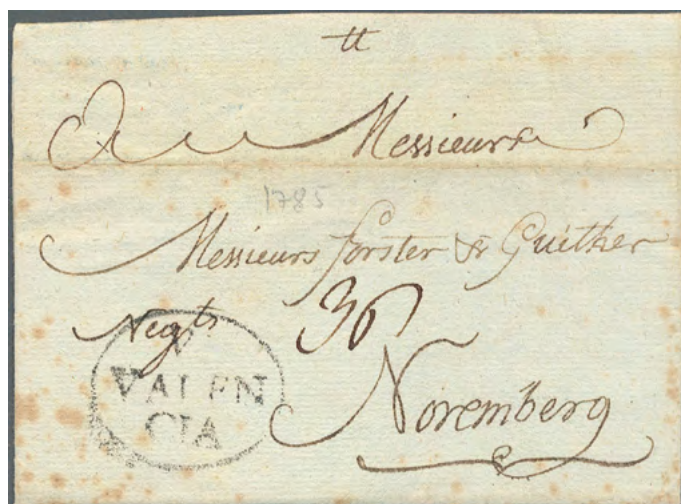 tt
A Messieurs
1785
Messieurs Forster & Guither
Negts 36
V
VALEN
CIA
Noremberg